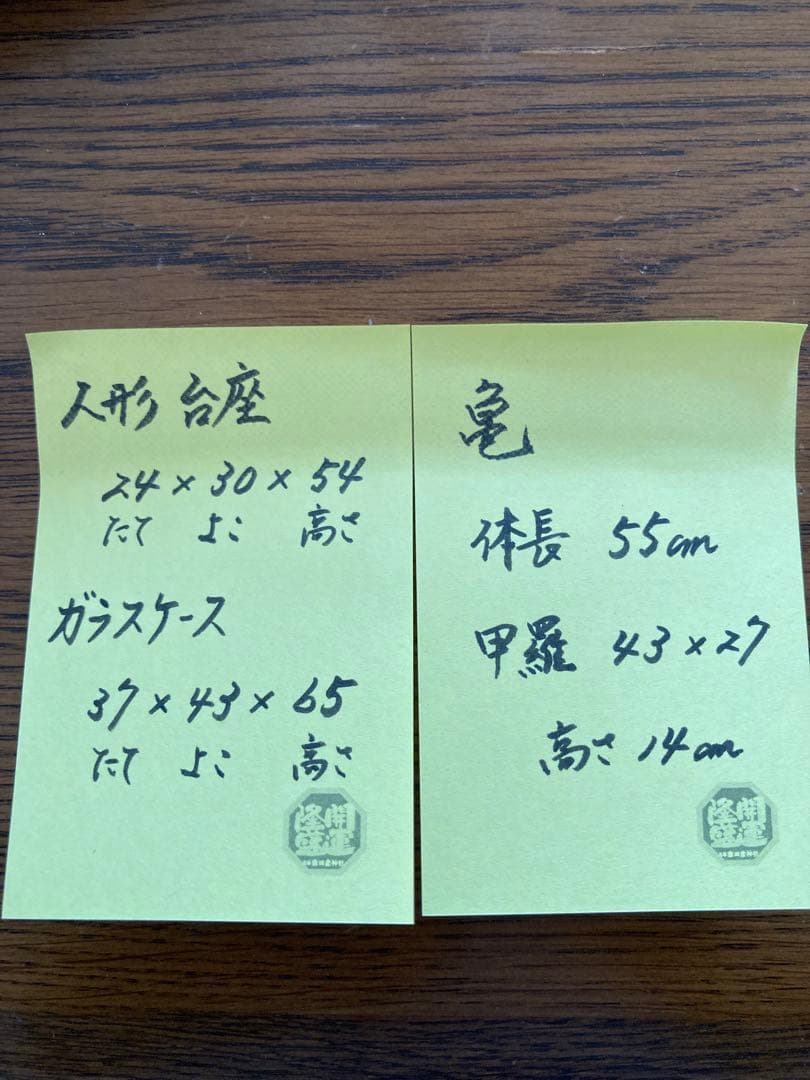 人形 台座
24 × 30 × 54
たて よこ 高さ
ガラスケース
37 × 43 × 65
たて よこ 高さ
開運
隆盛
亀
体長 55cm
甲羅 43 × 27
高さ 14cm
開運
隆盛